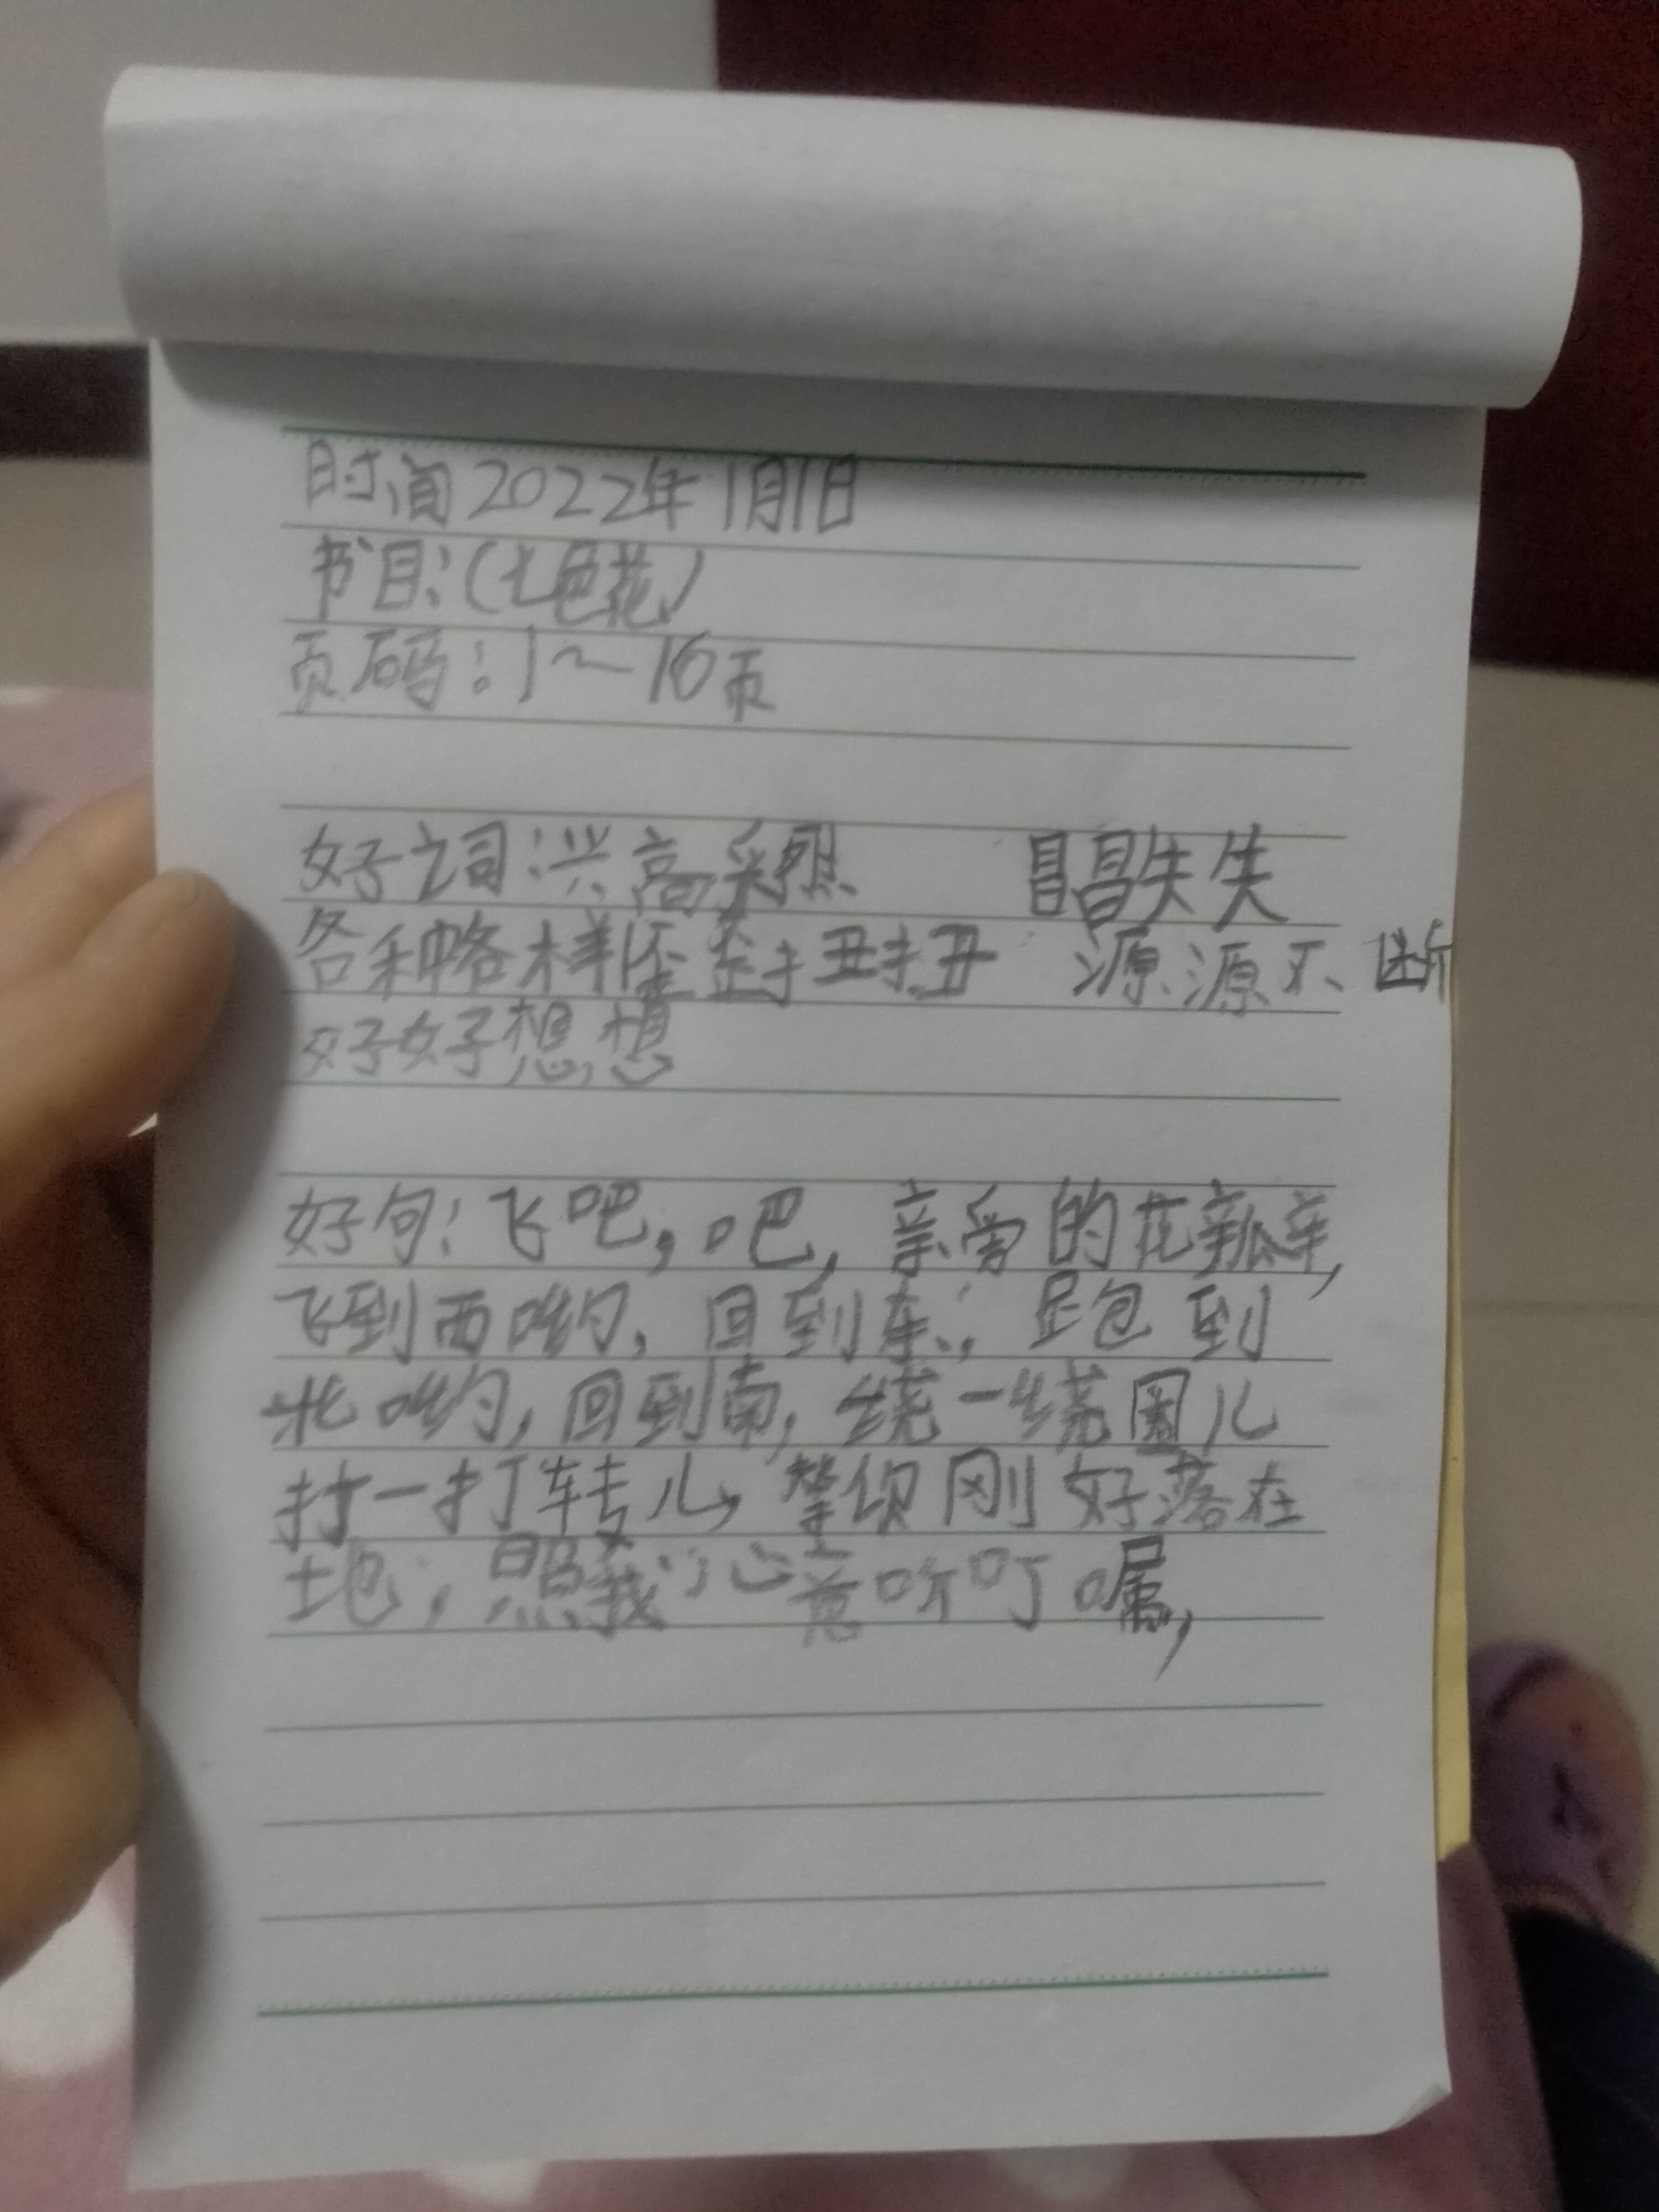 时间2022年1月1日
书目:(七色花)
页码:1~16页
好词:兴高采烈 冒冒失失
各种各样歪歪扭扭 源源不断
好好想想
好句:飞吧,吧,亲爱的花瓣,
飞到西哟,回到东,跑到
北哟,回到南,绕一绕圈儿
打一打转儿,等你刚好落在
地,照我心意听叮嘱,